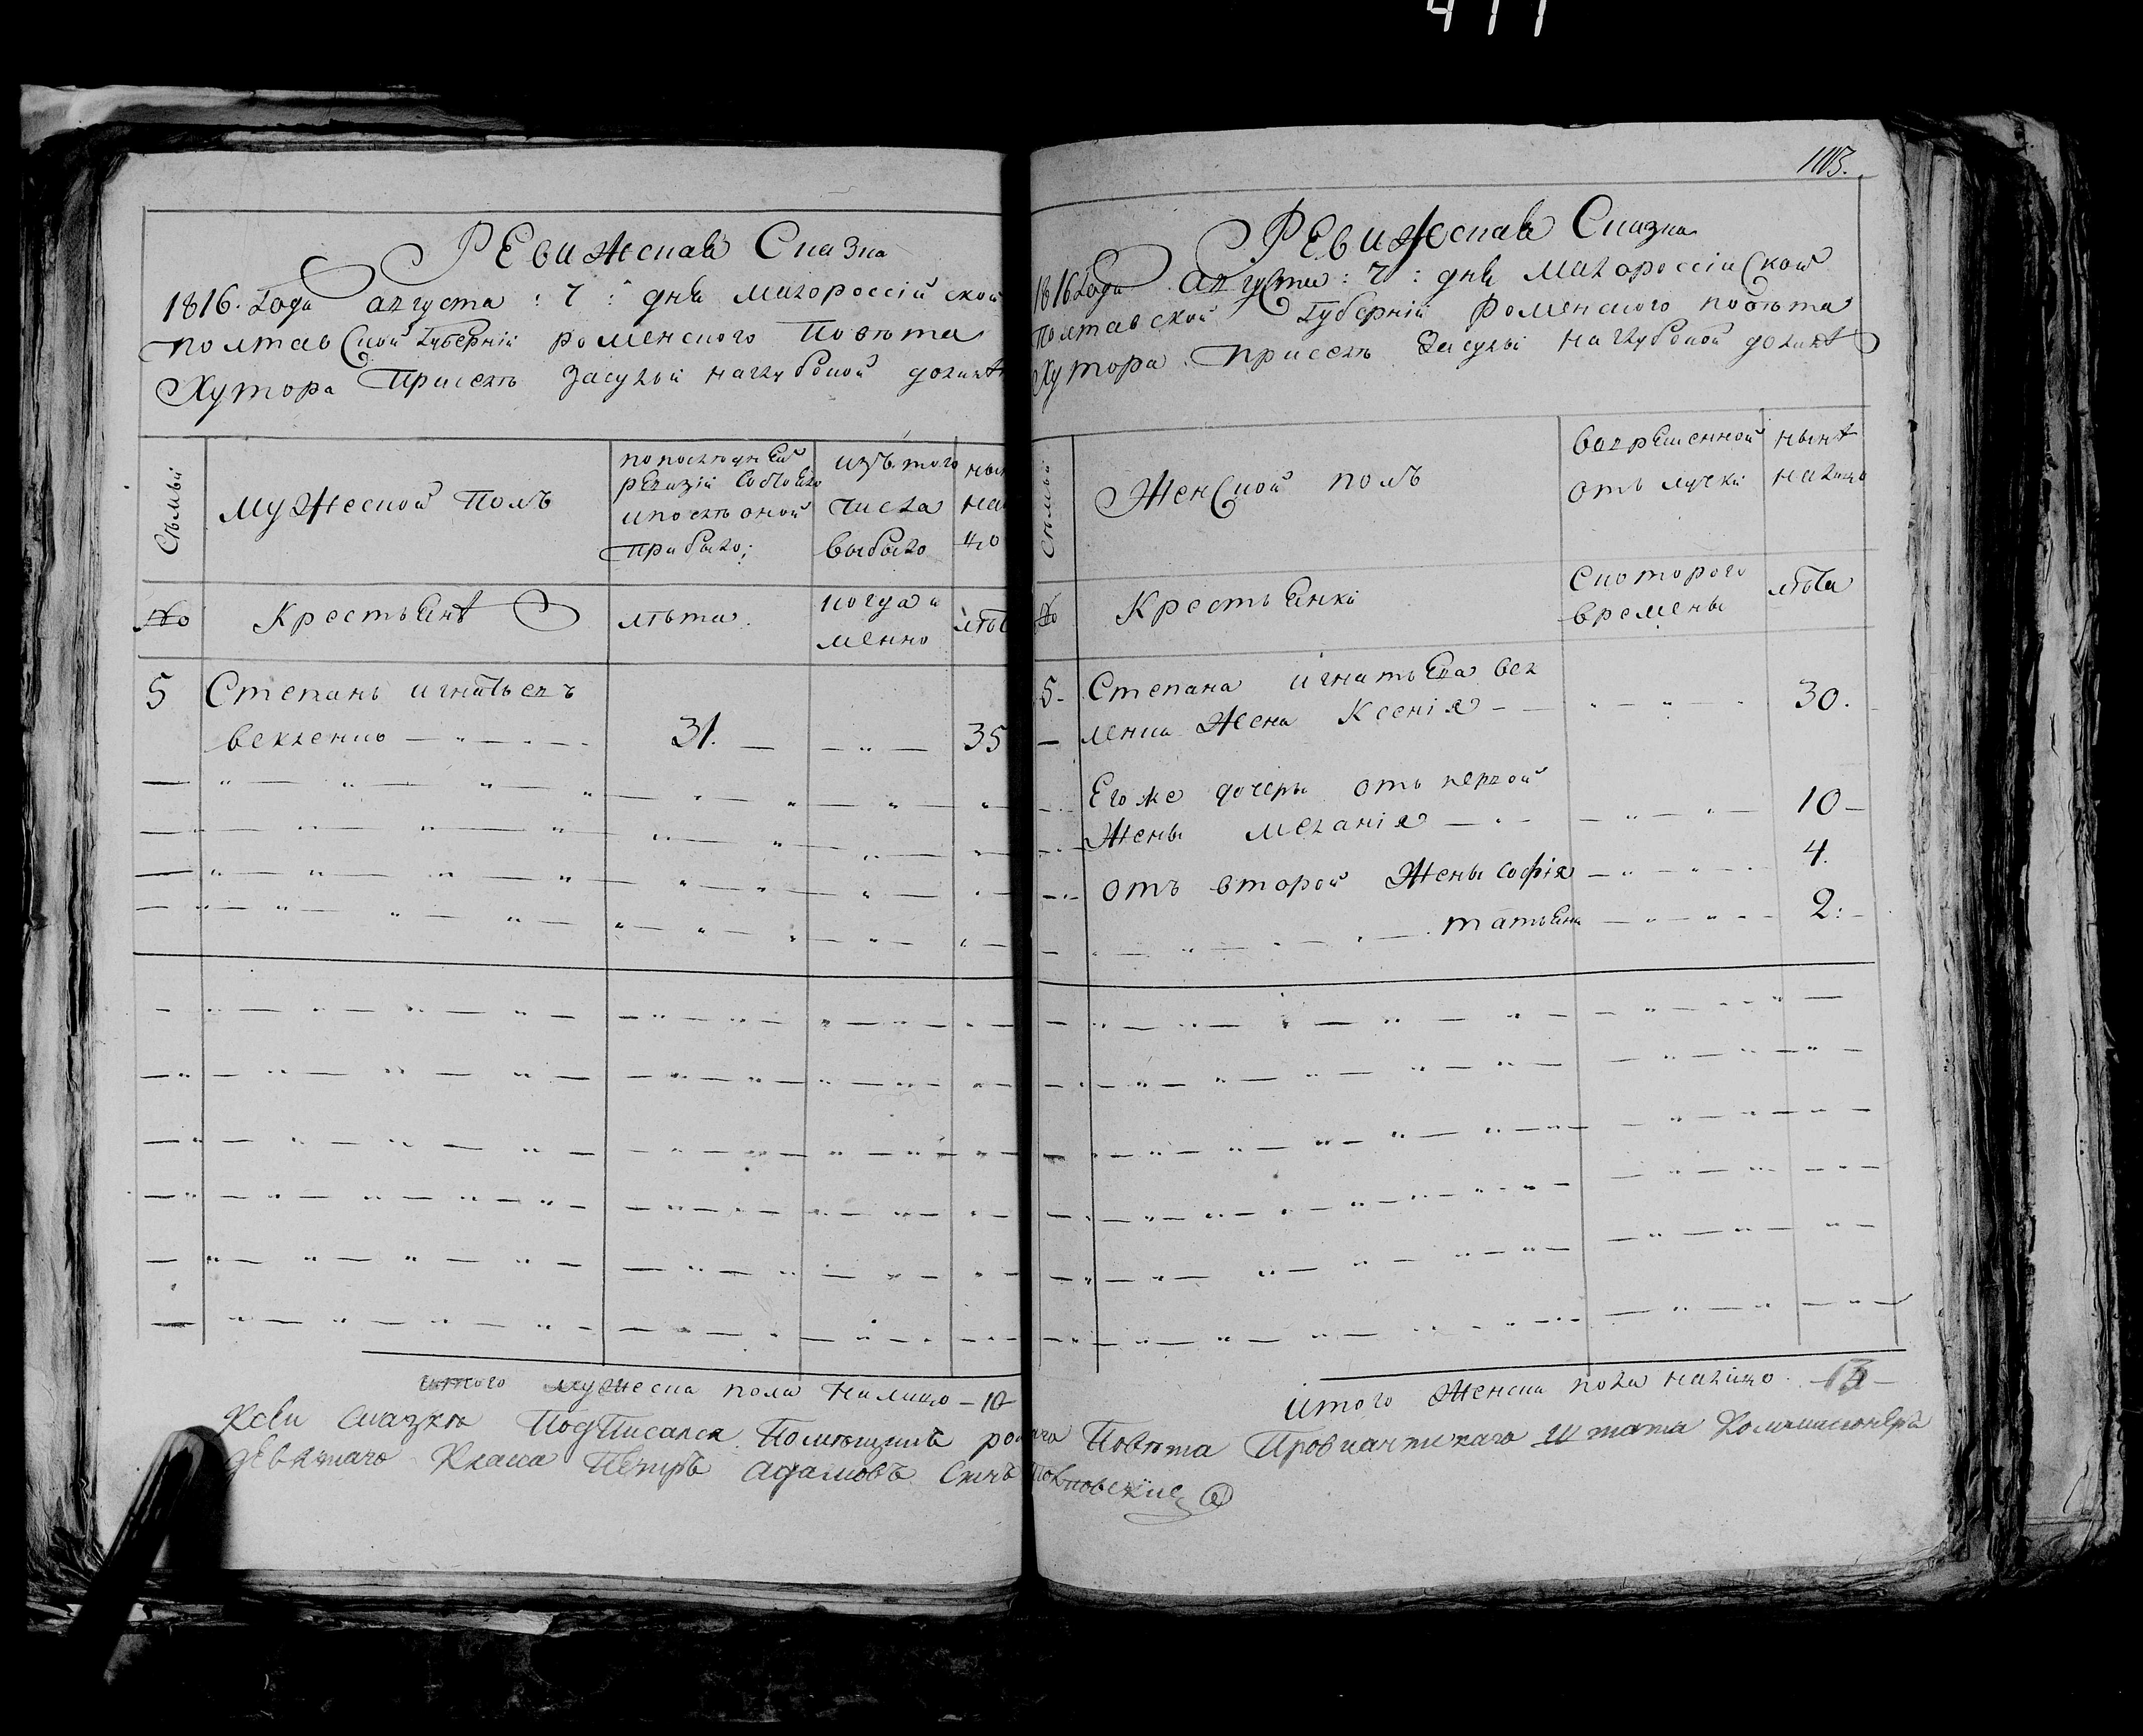 411
РЕвижская Сказка
1816. Года августа : 7 : дня малороссійской
полтавской Губерніи роменского повѣта
Хутора При селѣ Засульи на глубокой долинѣ
Сѣмьи
мужеской полъ
по послѣдней
ревизіи состояло
и послѣ оной
прибыло;
изъ того
числа
выбыло
№
Крестьянѣ
лѣта.
когда и
менно
5 Степанъ игнатьевъ
векленко 31. 35
Итого мужеска пола налицо - 10
103.
РЕвижская Сказка
1816 Года августа : 7 : дня малороссійской
Полтавской Губерніи роменского повѣта
Хутора при селѣ Засульи на глубокой долинѣ
Семьи
Женской полъ
во временной
отлучки
нынѣ
налицо
№
Крестьянки
С которого
времены
лѣта
5. Степана игнатьева век
ленка жена Ксенія 30.
Его же дочери от первой
Жены меланія 10
отъ второй Жены софія 4.
татьяна 2:
Итого Женска пола налицо 13
К сей сказкѣ подписался Помѣщикъ ро повѣта Провиантскаго штата Коммисионеръ
девятаго Класса Петръ адамовъ Синъ